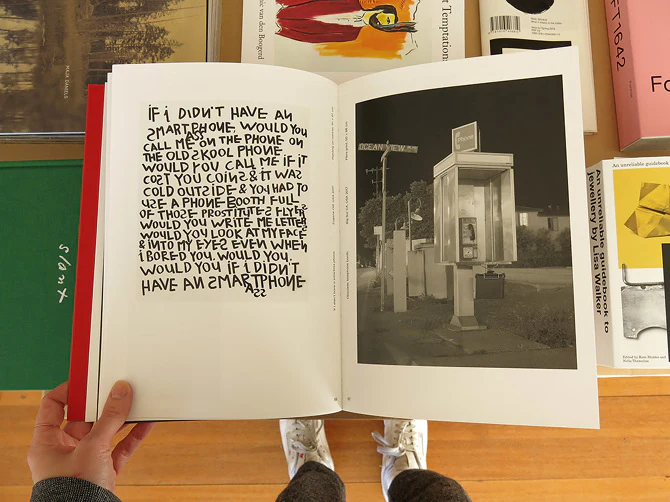 nic van den Boogend
t Temptations
FT 1642
Fo
IF i DiDN'T HAVE AN
SMARTPHONE WOULD YOU
ASS
CALL ME ON THE PHONE ON
THE OLD SKOOL PHONE
WOULD YOU CALL ME IF IT
COST YOU COINS & IT WAS
COLD OUTSIDE & YOU HAD TO
USE A PHONE BOOTH FULL
OF THOSE PROSTITUTES FLYERS
WOULD YOU WRITE ME LETTERS
WOULD YOU LOOK AT MY FACE
& INTO MY EYES EVEN WHEN
i BORED YOU. WOULD YOU.
WOULD YOU IF i DiDN'T
HAVE AN SMARTPHONE
ASS
OCEAN VIEW
Phone
An unreliable guidebook
An unreliable guidebook to
jewellery by Lisa Walker